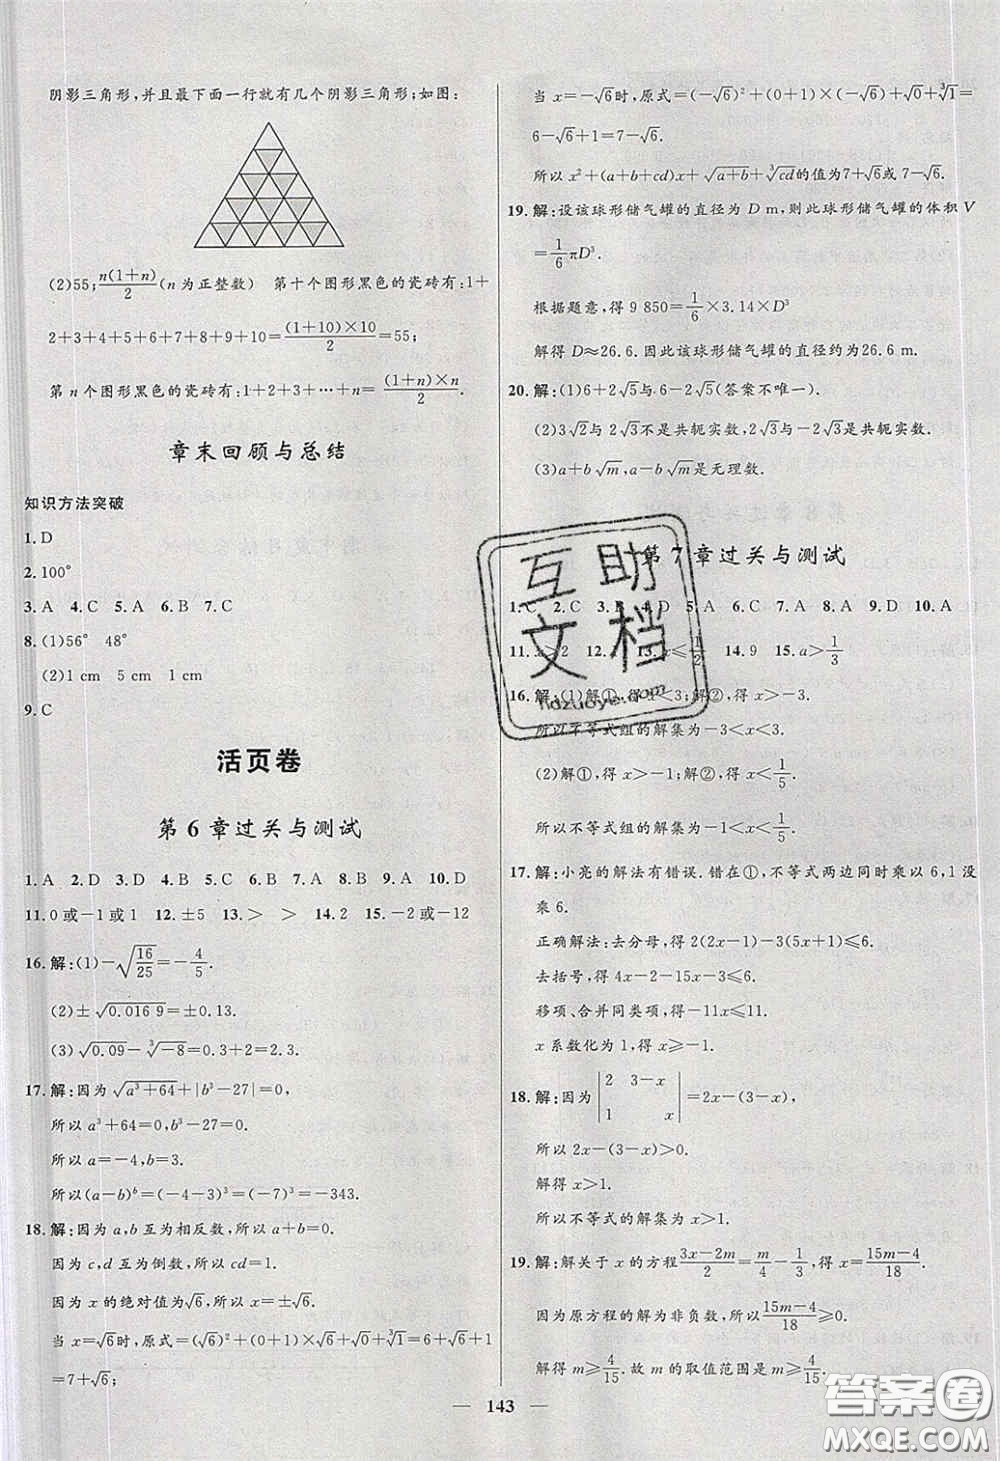 阴影三角形,并且最下面一行就有几个阴影三角形;如图:
(2)55;n(1+n)/2(n 为正整数) 第十个图形黑色的瓷砖有:1+
2+3+4+5+6+7+8+9+10=(1+10)×10/2=55;
第 n 个图形黑色的瓷砖有:1+2+3+…+n=(1+n)×n/2.
章末回顾与总结
知识方法突破
1.D
2.100°
3.A 4.C 5.A 6.B 7.C
8.(1)56° 48°
(2)1 cm 5 cm
9.C
活页卷
第 6 章过关与测试
1.A 2.D 3.D 4.C 5.C 6.B 7.A 8.D 9.A 10.D
11.0或-1或1 12.±5 13.> > 14.2 15.-2或-12
16.解:(1)-√(16/25)=-4/5.
(2)±√0.016 9=±0.13.
(3)√0.09-³√-8=0.3+2=2.3.
17.解:因为√(a³+64)+|b³-27|=0,
所以 a³+64=0,b³-27=0.
所以 a=-4,b=3.
所以(a-b)ᵇ=(-4-3)³=(-7)³=-343.
18.解:因为 a,b 互为相反数,所以 a+b=0.
因为 c,d 互为倒数,所以 cd=1.
因为 x 的绝对值为√6,所以 x=±√6.
当 x=√6时,原式=(√6)²+(0+1)×√6+√0+³√1=6+√6+1
=7+√6;
当 x=-√6时,原式=(-√6)²+(0+1)×(-√6)+√0+³√1=
6-√6+1=7-√6.
所以 x²+(a+b+cd)x+√(a+b)+³√cd的值为7+√6或 7-√6.
19.解:设该球形储气罐的直径为 D m,则此球形储气罐的体积 V
=1/6πD³.
根据题意,得 9 850=1/6×3.14×D³
解得 D≈26.6.因此该球形储气罐的直径约为 26.6 m.
20.解:(1)6+2√5与 6-2√5(答案不唯一).
(2)3√2与 2√3不是共轭实数,2√3与-2√3是共轭实数.
(3)a+b√m,a-b√m是无理数.
第 7 章过关与测试
1.C 2.C 3.B 4.D 5.A 6.B 7.A 8.A 9.D 10.A
11.x>2 12.4 13.x≤-1/2 14.9 15.a>1/3
16.解:(1)解①,得 x<3;解②,得 x>-3.
所以不等式组的解集为-3<x<3.
(2)解①,得 x>-1;解②,得 x<1/5.
所以不等式组的解集为-1<x<1/5.
17.解:小亮的解法有错误.错在①,不等式两边同时乘以 6,1 没
乘 6.
正确解法:去分母,得 2(2x-1)-3(5x+1)≤6.
去括号,得 4x-2-15x-3≤6
移项、合并同类项,得-11x≤11.
x 系数化为 1,得 x≥-1.
18.解:因为|2 3-x
1 x|=2x-(3-x),
所以 2x-(3-x)>0.
解得 x>1.
所以不等式的解集为 x>1.
19.解:解关于 x 的方程(3x-2m)/2=m/4-1/3,得 x=(15m-4)/18.
因为原方程的解为非负数,所以(15m-4)/18≥0.
解得 m≥4/15.故 m 的取值范围是 m≥4/15.
143
互助
文档
hdzuoye.com
答案圈
MXQE.COM